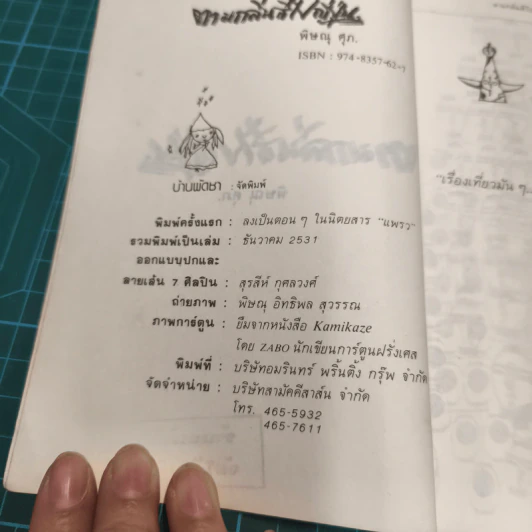 ตามกลิ่นสีไปญี่ปุ่น
พิษณุ ศุภ.
ISBN : 974-8357-62-7
บ้านพัดชา : จัดพิมพ์
พิมพ์ครั้งแรก : ลงเป็นตอน ๆ ในนิตยสาร "แพรว"
รวมพิมพ์เป็นเล่ม : ธันวาคม 2531
ออกแบบปกและ
ลายเส้น 7 ศิลปิน : สุรสีห์ กุศลวงศ์
ถ่ายภาพ : พิษณุ อิทธิพล สุวรรณ
ภาพการ์ตูน : ยืมจากหนังสือ Kamikaze
โดย ZABO นักเขียนการ์ตูนฝรั่งเศส
พิมพ์ที่ : บริษัทอมรินทร์ พริ้นติ้ง กรุ๊พ จำกัด
จัดจำหน่าย : บริษัทสามัคคีสาส์น จำกัด
โทร. 465-5932
465-7611
"เรื่องเที่ยวมัน ๆ